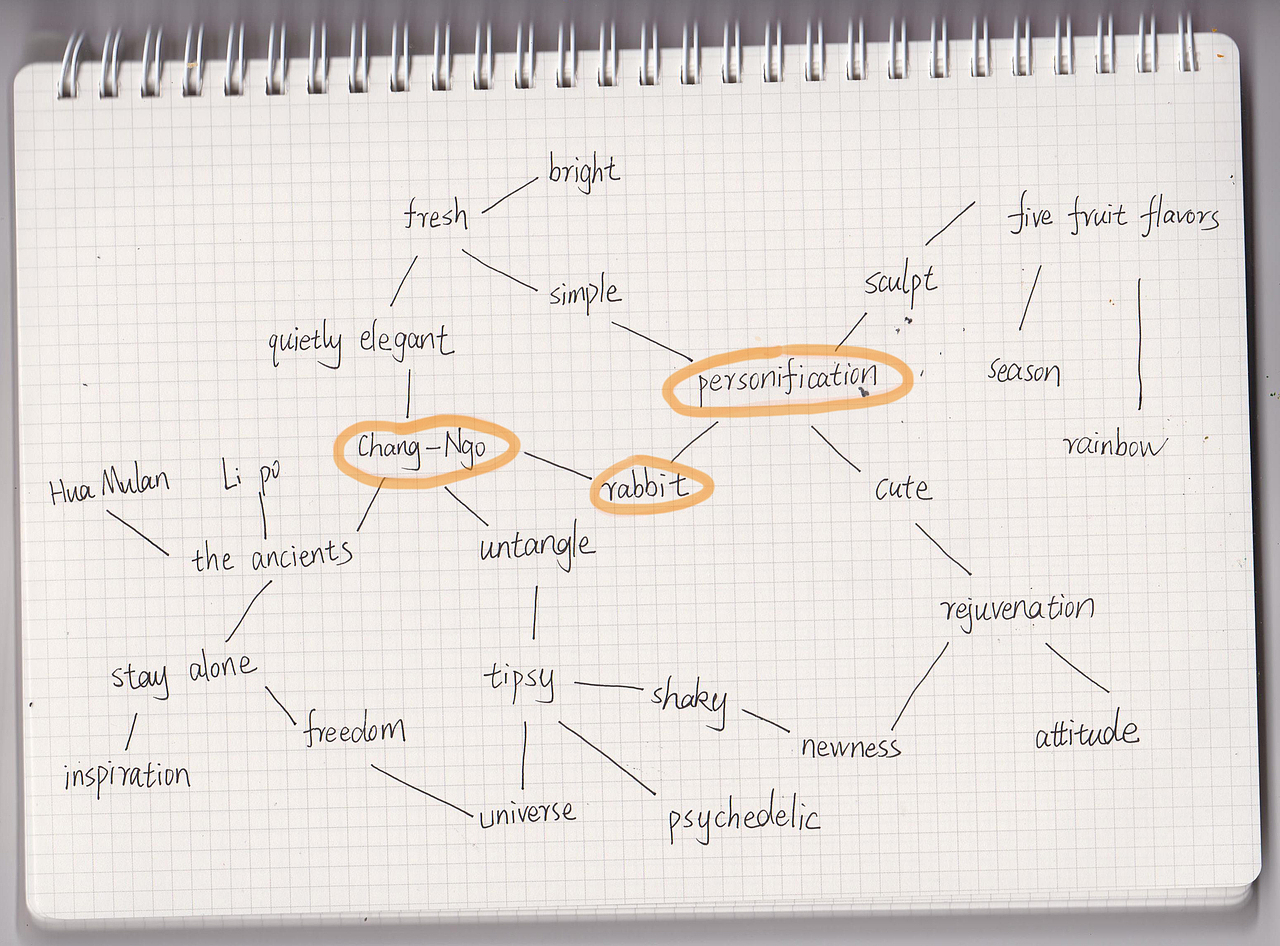 bright
fresh
five fruit flavors
simple
sculpt
quietly elegant
season
personification
Chang-Ngo
rainbow
Hua Mulan
Li po
rabbit
cute
the ancients
untangle
rejuvenation
stay alone
tipsy
shaky
freedom
newness
attitude
inspiration
universe
psychedelic